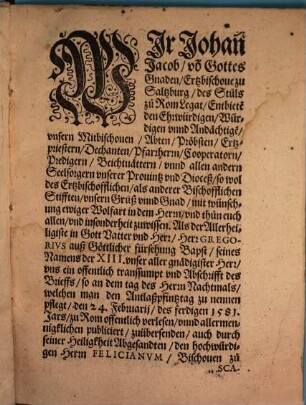 WIr Johañ
Jacob/ võ Gottes
Gnaden/ Ertzbischoue zu
Saltzburg/ des Stůls
zů Rom Legat/ Entbietē
den Ehrwürdigen/ Wür-
digen vnnd Andächtigē/
vnsern Mitbischouen/ Abten/ Pröbsten/ Ertz-
priestern/ Dechanten/ Pfarrherrn/ Cooperatorn/
Predigern/ Beichtuättern/ vnnd allen andern
Seelsorgern vnserer Prouintz vnd Dioceß/ so wol
des Ertzbischofflichen/ als anderer Bischofflichen
Stifften/ vnsern Grůß vnnd Gnad/ mit wünsch-
ung ewiger Wolfart in dem Herrn/ vnd thůn euch
allen/ vnd insonderheit zuwissen. Als der Allerhei-
ligiste in Gott Vatter vnd Herr/ Herr GREGO-
RIVS auß Göttlicher fürsehung Bapst/ seines
Namens der XIII. vnser aller gnädigister Herr/
vns ein offentlich transsumpt vnd Abschrifft des
Brieffs/ so an dem tag des Herrn Nachtmals/
welchen man den Antlaßpfintztag zu nennen
pflegt/ den 24. Februarij/ des ferdigen 1581.
Jars/ zů Rom offentlich verlesen/ vnnd allermen-
nigklichen publiciert/ zuübersenden/ auch durch
seiner Heiligkeit Abgesandten/ den hochwürdi-
gen Herrn FELICIANVM/ Bischouen zů
SCA-